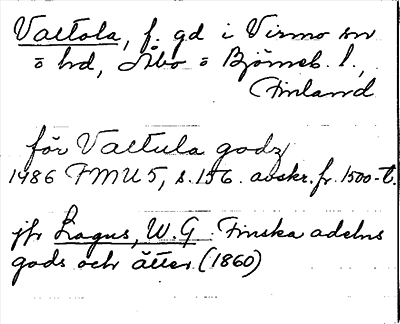 Valtola, f. gd i Virmo sn
o hd, Åbo o Björneb. l.,
Finland
för Valtula godz
1486 FMU 5, s. 156. avskr. fr. 1500-t.
jfr Lagus, W.G. Finska adelns
gods och ätter (1860)